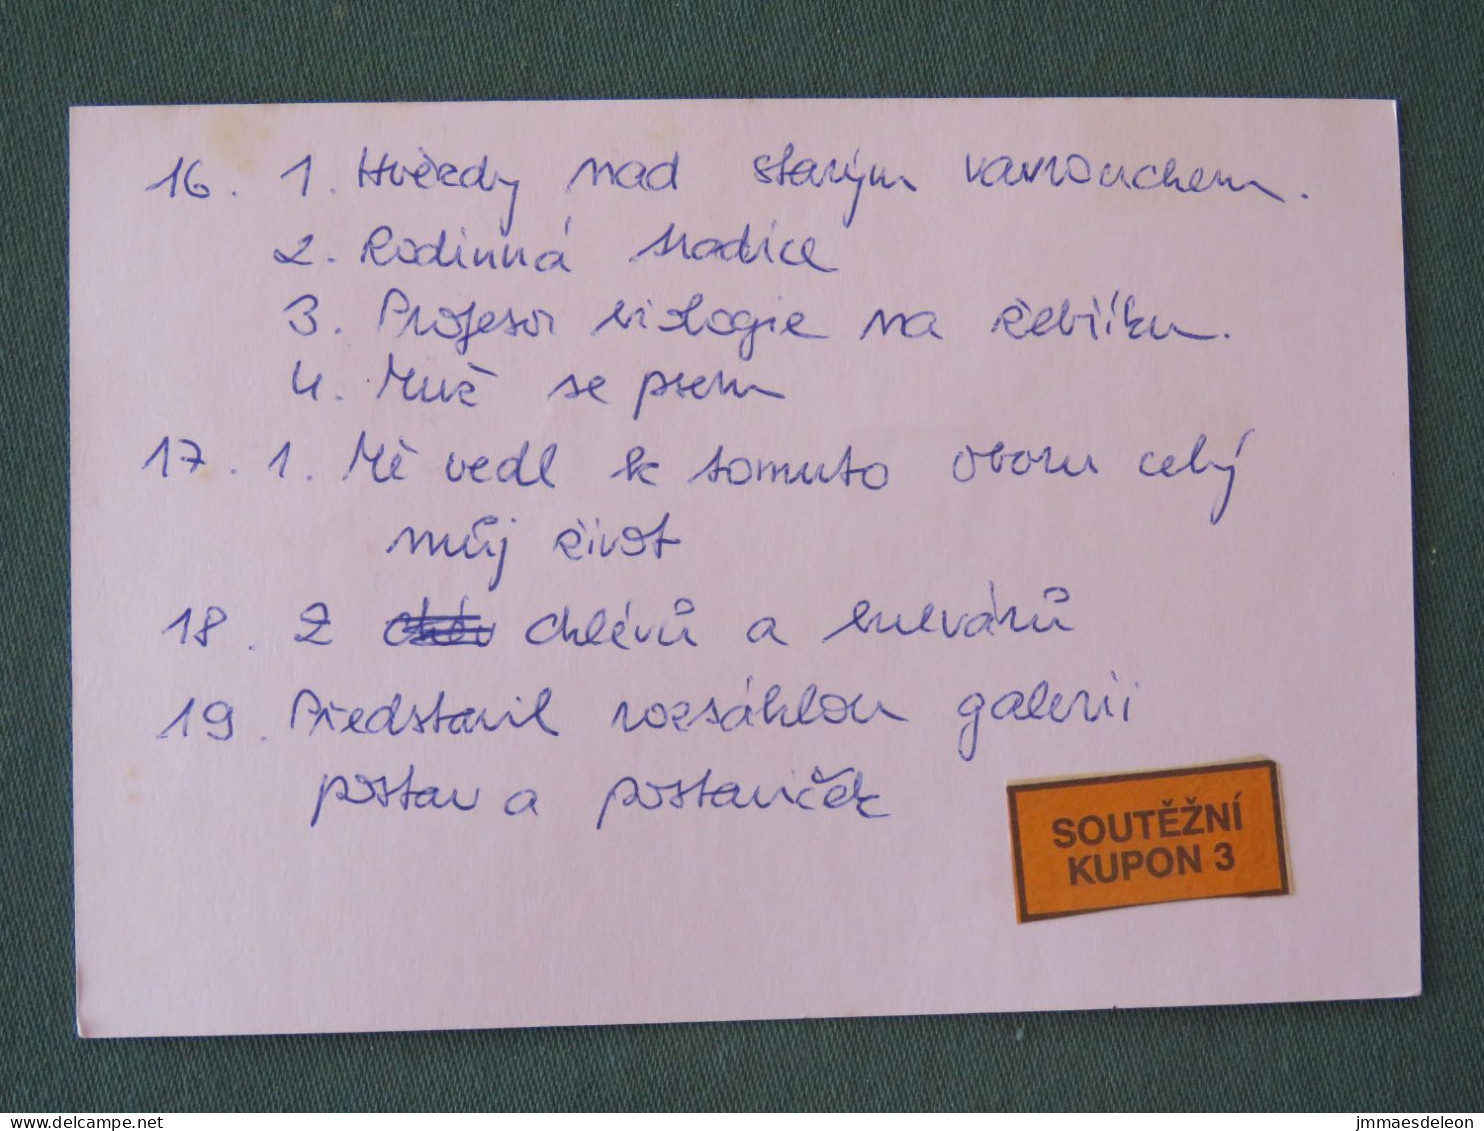 16. 1. Hvězdy nad starým vavrouchem.
2. Rodinná tradice
3. Profesor biologie na žebříku.
4. Muž se psem
17. 1. Mě vedl k tomuto oboru celý
můj život
18. Z chlévů a bulvárů
19. Představil rozsáhlou galerii
postav a postaviček
SOUTĚŽNÍ
KUPON 3
delcampe.net
jmmaesdeleon